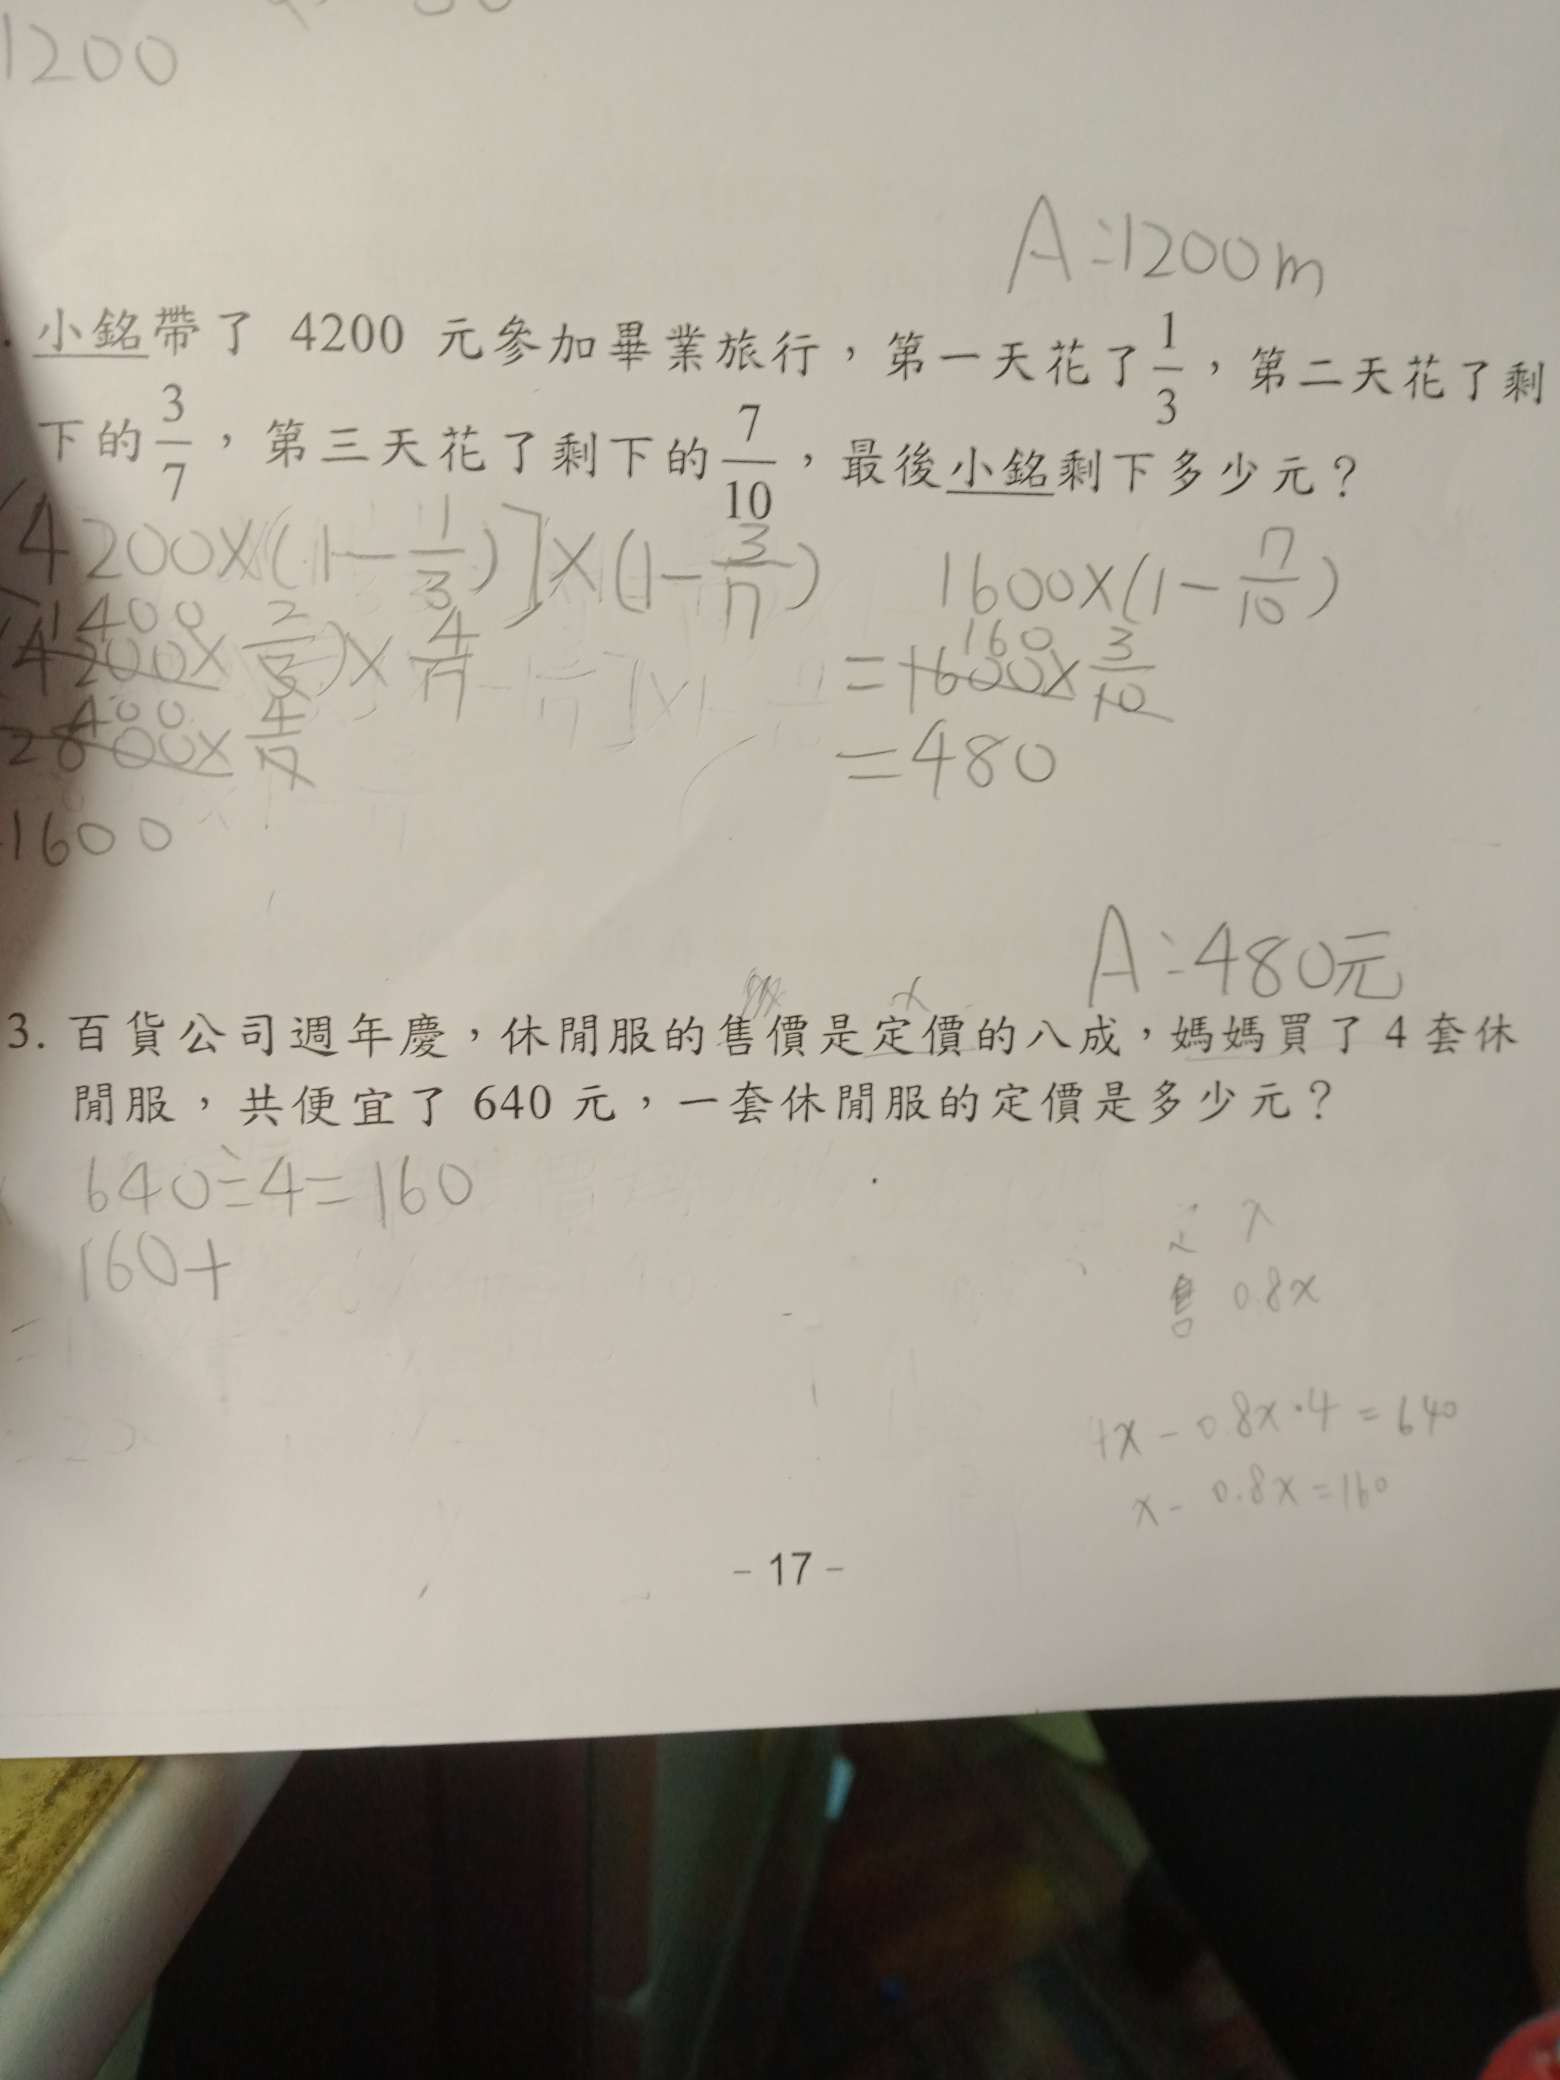 1200
A:1200m
小銘帶了 4200 元參加畢業旅行，第一天花了1/3，第二天花了剩
下的3/7，第三天花了剩下的7/10，最後小銘剩下多少元？
4200×(1-1/3)]×(1-3/7)
1400
4200×2/3)×4/7
400
2800×4/7
1600
1600×(1-7/10)
160
=1600×3/10
=480
A:480元
x
3. 百貨公司週年慶，休閒服的售價是定價的八成，媽媽買了 4 套休
閒服，共便宜了 640 元，一套休閒服的定價是多少元？
640÷4=160
160+
定 x
售 0.8x
4x-0.8x·4=640
x-0.8x=160
- 17 -